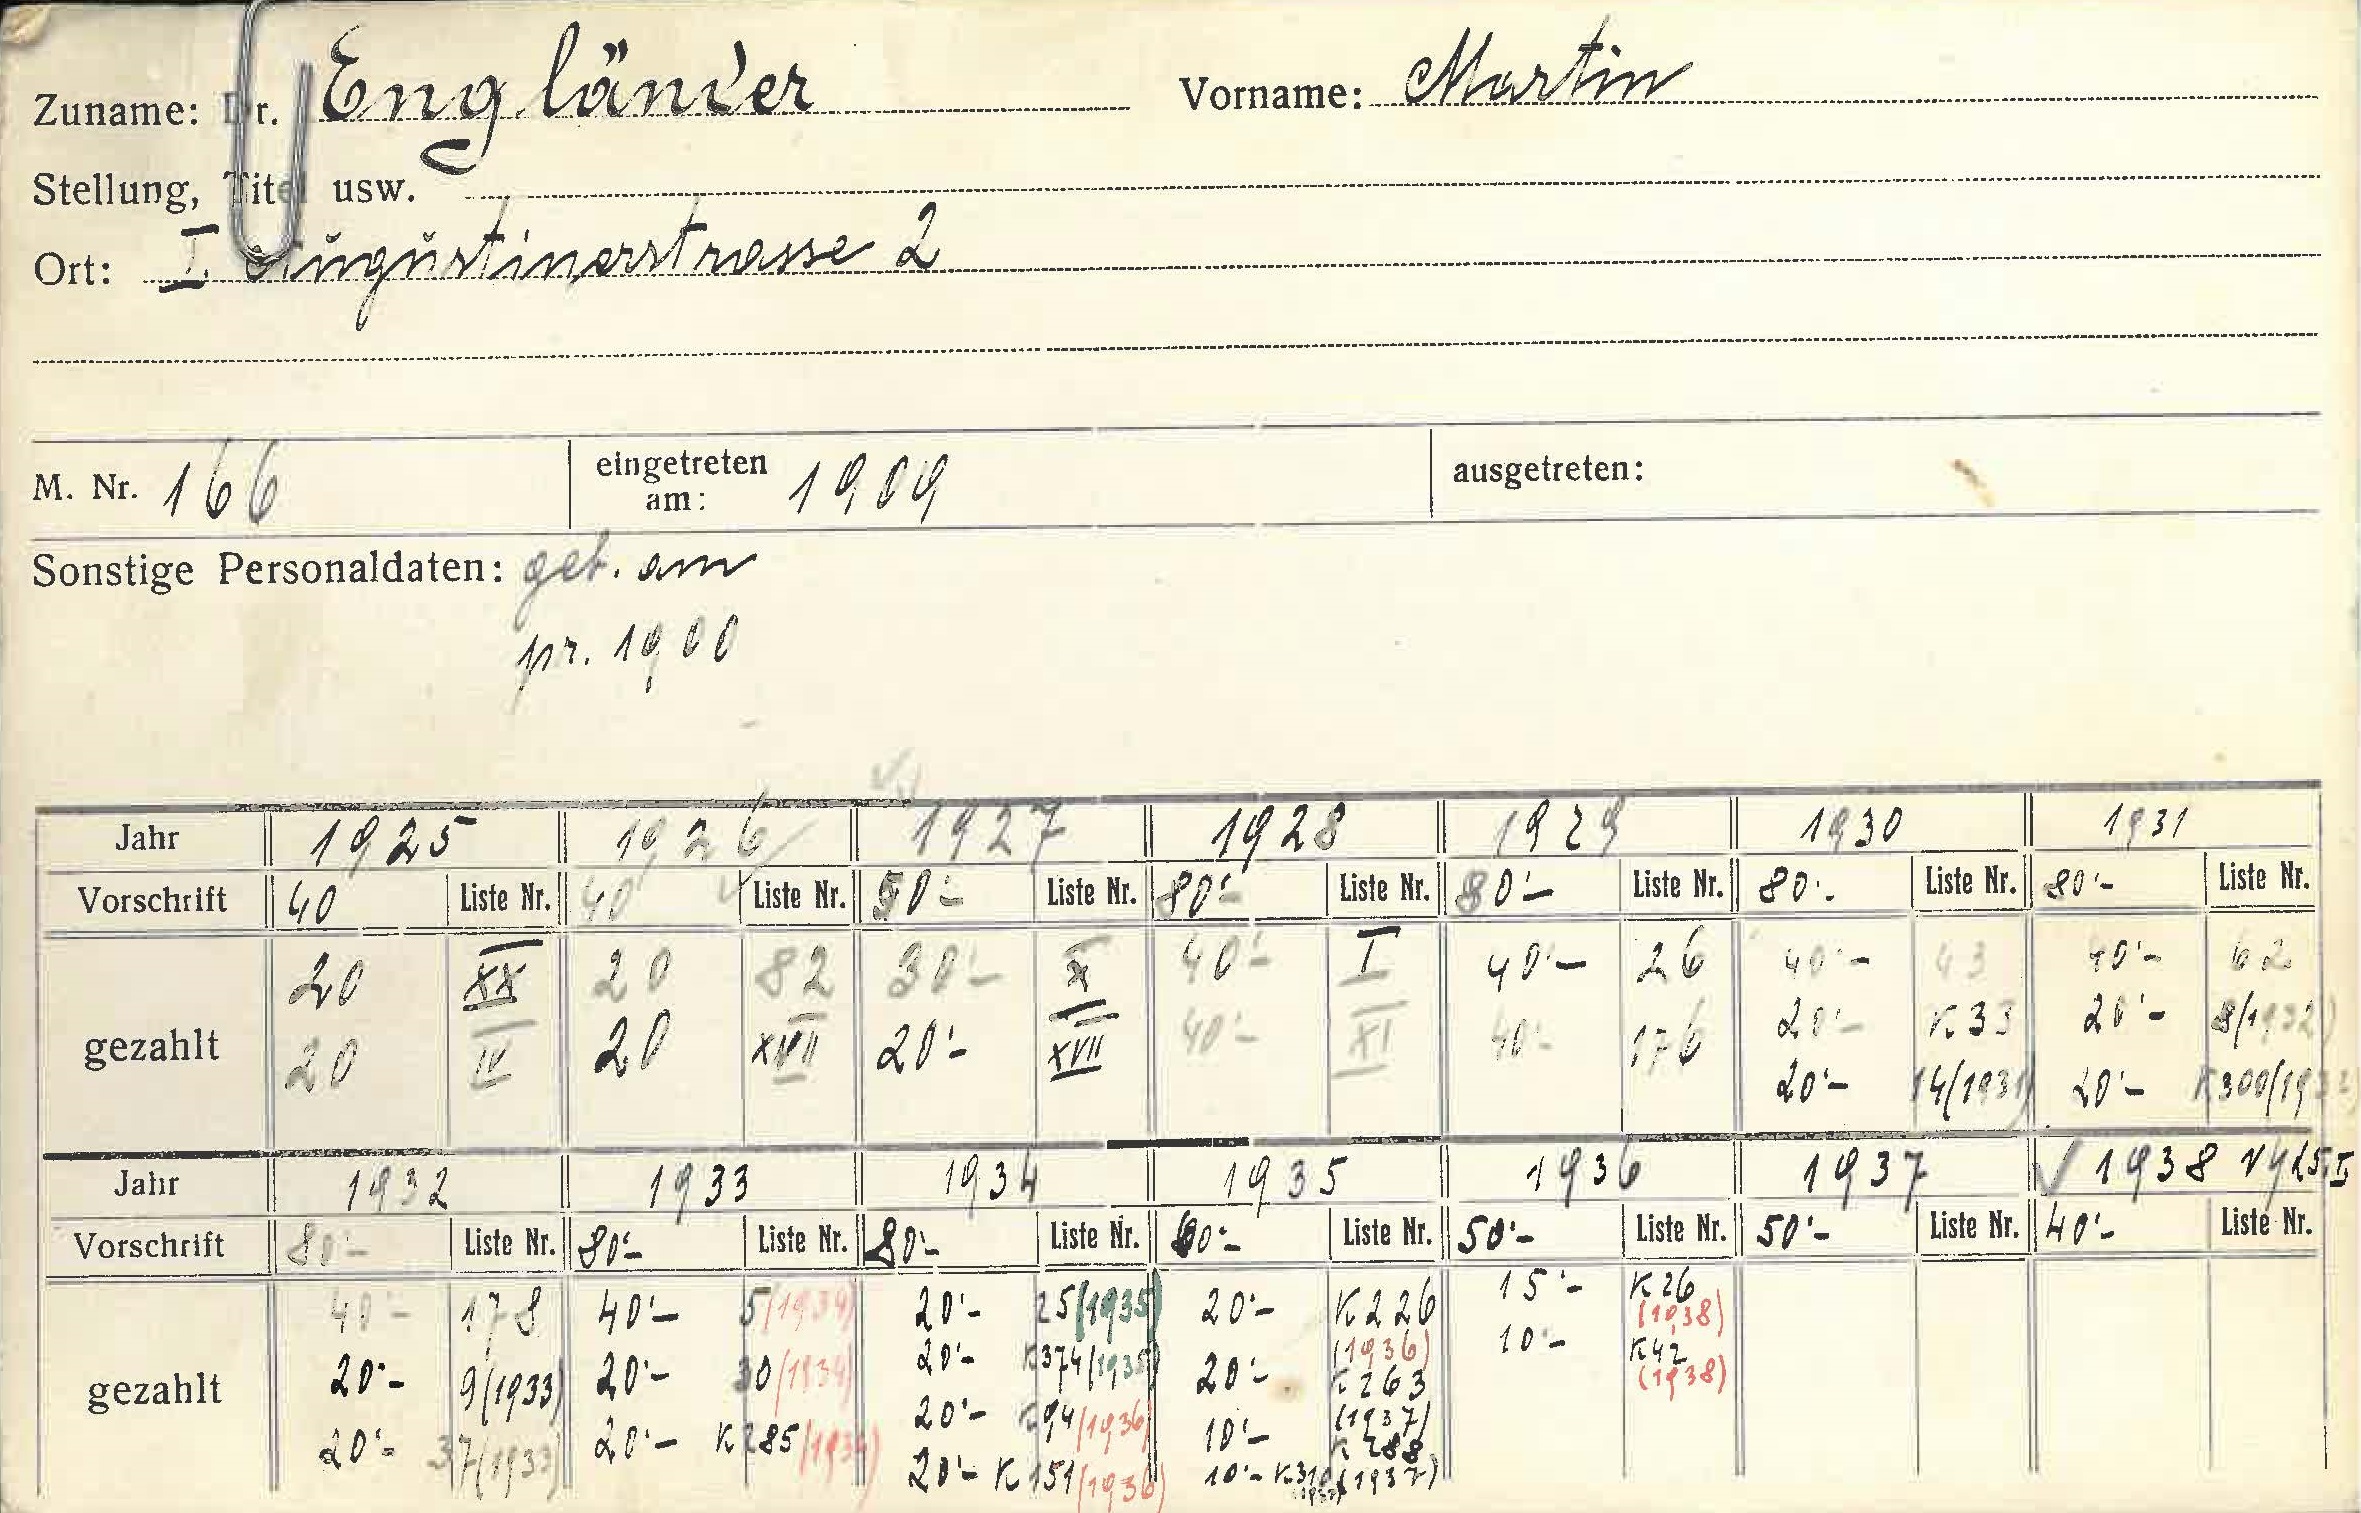 Zuname: Dr. Engländer Vorname: Martin
Stellung, Titel usw.
Ort: I. Augustinerstrasse 2
M. Nr. 166 eingetreten am: 1909 ausgetreten:
Sonstige Personaldaten: geb. am
pr. 1900
Jahr 1925 1926 1927 1928 1929 1930 1931
Vorschrift 40 Liste Nr. 40 Liste Nr. 50'- Liste Nr. 80'- Liste Nr. 80'- Liste Nr. 80'- Liste Nr. 80'- Liste Nr.
gezahlt
20 XX 20 82 30'- X 40'- I 40'- 26 40'- 43 40'- 62
20 IV 20 XVII 20'- XVII 40'- XI 40'- 176 20'- K33 20'- 8/1932)
20'- 14/(1931) 20'- K300/(1932)
Jahr 1932 1933 1934 1935 1936 1937 1938
Vorschrift 80'- Liste Nr. 80'- Liste Nr. 80'- Liste Nr. 60'- Liste Nr. 50'- Liste Nr. 50'- Liste Nr. 40'- Liste Nr.
gezahlt
40'- 178 40'- 5/(1934) 20'- 25/(1935) 20'- K226 (1936) 15'- K26 (1938)
20'- 9/(1933) 20'- 30/(1934) 20'- K374/(1935) 20'- K263 (1937) 10'- K42 (1938)
20'- 37/(1933) 20'- K285/(1934) 20'- K94/(1936) 10'- K288
20'- K151/(1936) 10'- K310 (1937)